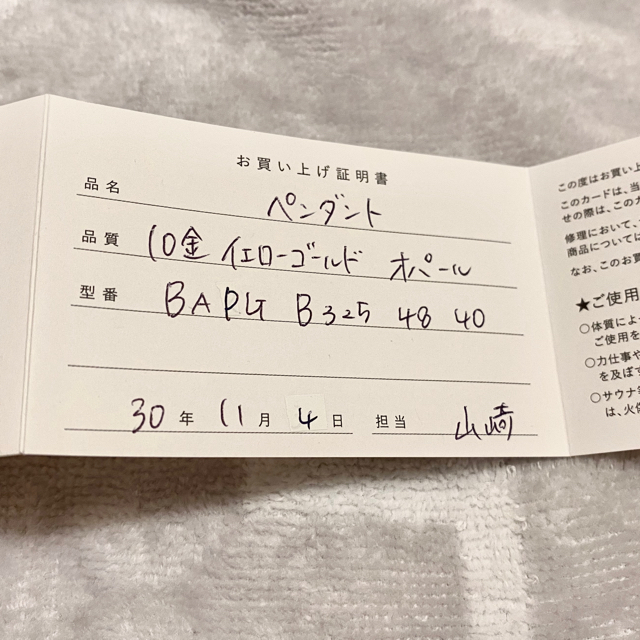 お買い上げ証明書
品名 ペンダント
品質 10金 イエローゴールド オパール
型番 BAPG B325 48 40
30年 11月 4日 担当 山崎
この度はお買い上
このカードは、当
せの際は、このカ
修理において、
商品については
なお、このお買
★ご使用
○体質によっ
ご使用を
○力仕事や
を及ぼす
○サウナ等
は、火傷